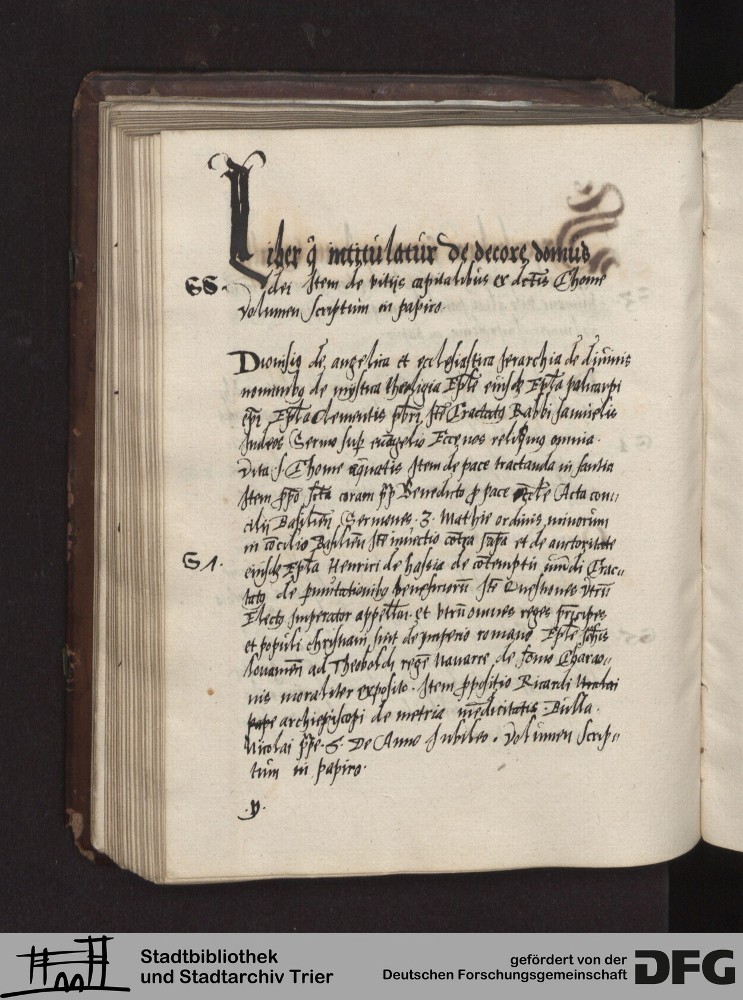 Liber q̃ intitulatur de decore domus
GG. dei Item de vitijs capitalibus ex dictis Thome
volumen scriptum in papiro.
Dionisiꝯ de angelica et ecclesiastica Ierarchia de diuinis
nominibꝫ de mystica theologia Eple eiusdē Epla policarpi
epī Epla Clementis pbrī Itē Tractatꝯ Rabbi Samuelis
Iudeos Sermo sup euāgelio Ecce nos reliqimꝯ omnia.
Vita S. Thome aquatis Item de pace tractanda in
Item ppō fcta coram pp Benedicto p pace Acta con„
cilij Basiliēn Sermones. 3. Mathie ordinis minorum
in cōcilio Basiliēn Itē inuectio cōtra papā et de auctoritate
G 1. eiusdē Epla Henrici de hassia de cōtemptu mūdi Trac„
tatꝯ de pmutationibꝫ beneficiorū Itē Questiones Vtrū
Electꝯ Imperator appellat. et vtrū omnes reges prīcipes
et populi christiani sint de imperio romano Eple
ad Theobaldū regē Nauarre de somno Pharao„
nis moraliter exposito. Item ppositio Ricardi
pape archiepiscopi de metria
Bulla.
Nicolai ppe. 5. De Anno Iubileo. Volumen scrip„
tum in papiro.
.y.
Stadtbibliothek
und Stadtarchiv Trier
gefördert von der
Deutschen Forschungsgemeinschaft
DFG